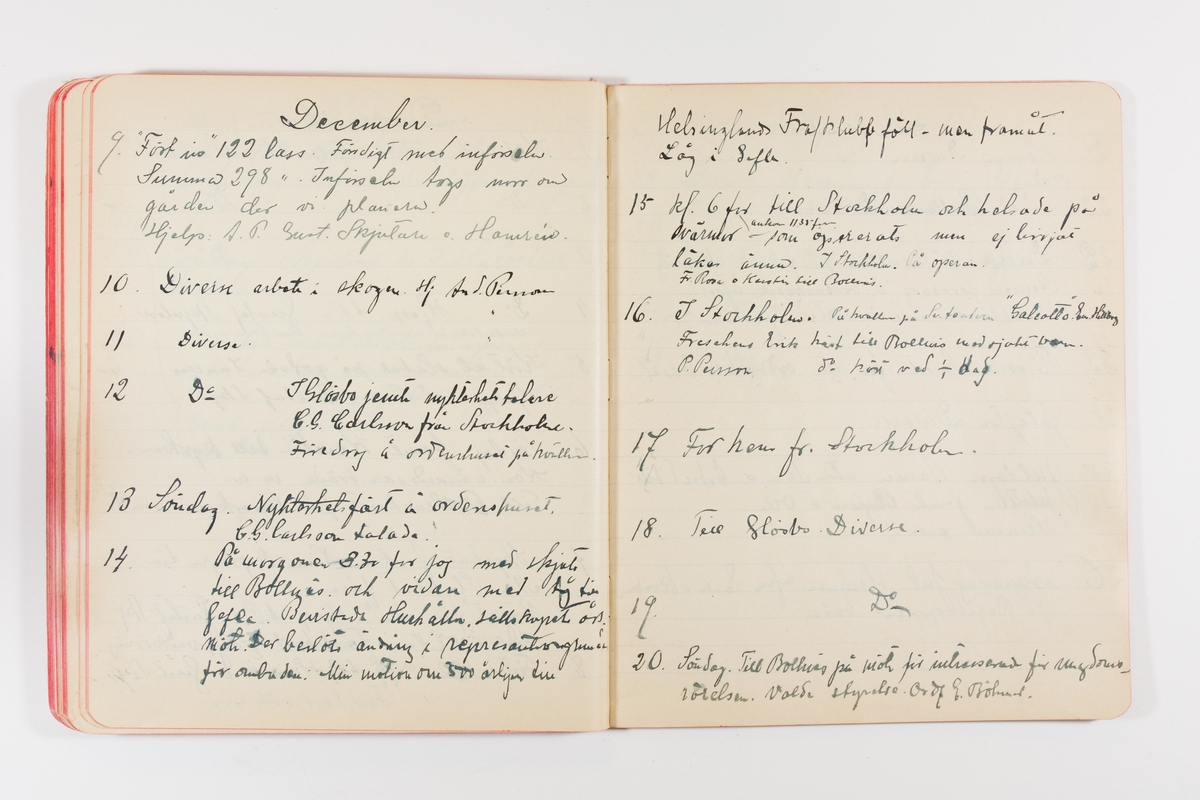 December.
9. "Fört in" 122 lass. Färdigt med införseln.
Summa 298 ". Införseln togs norr om
gården der vi planera.
Hjelp: A. P. Gust Skjutare o. Hamrén.
10. Diverse arbete i skogen. Hj And. Persson
11 Diverse. "
12 Do I Glösbo jemte nykterhetstalare
C.G. Carlsson från Stockholm.
Föredrag å ordenshuset på kvällen.
13 Söndag. Nykterhetsfäst å ordenshuset.
C.G. Carlsson talade.
14. På morgonen 3.30 for jog med skjuts
till Bollnäs och vidare med tåg till
Gefle. Bevistade Hushålln. sällskapets års-
möte. Der beslöts ändring i
för ombuden. Min motion om 500 årligen till
Helsinglands föll - men framåt.
Låg i Gefle.
15 Kl. 6 for till Stockholm och helsade på
ankom 1135 fm
svärmor - som opererats men ej börjat
läkas ännu. I Stockholm. På operan.
Fr Rosa o Kerstin till Bollnäs.
16. I Stockholm. På kvällen på Sv. teatern "Galeotto".
Erik häst till Bollnäs med
P. Persson do kört ved ½ dag.
17 For hem fr. Stockholm.
18. Till Glösbo. Diverse.
19. Do
20. Söndag. Till Bollnäs på möte för intresserade för ungdoms-
rörelsen. Valde styrelse. Ordf E. Böhmer.